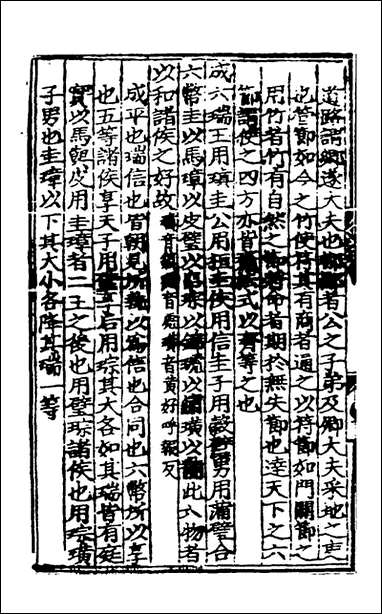 道路謂鄉遂大夫也都鄙者公之子弟及卿大夫采地之吏
也管節如今之竹使符其有商者通之以符節如門關節之
用竹者竹有自然之節符命者期於無失節也達天下之六
節謂使之四方亦皆法式以齊等之也
成六瑞王用瑱圭公用桓圭侯用信圭子用穀璧男用蒲璧合
六幣圭以馬璋以皮璧以帛琮以錦琥以繡璜以黼此六物者
以和諸侯之好故 者黃好呼報反
成平也瑞信也皆朝見所執以爲信也合同也六幣所以享
也五等諸侯享天子用璧享后用琮其大各如其瑞皆有庭
實以馬若皮用圭璋者二王之後也用璧琮諸侯也用琮璜
子男也圭璋以下其大小各降其瑞一等